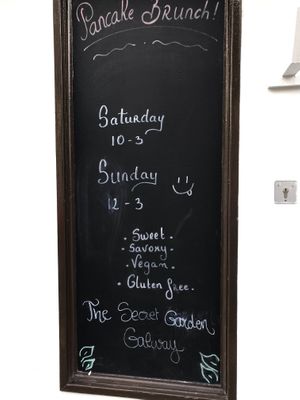 Pancake Brunch!
Saturday
10-3
Sunday
12-3
· Sweet ·
· Savory ·
· Vegan ·
· Gluten free.
The Secret Garden
Galway